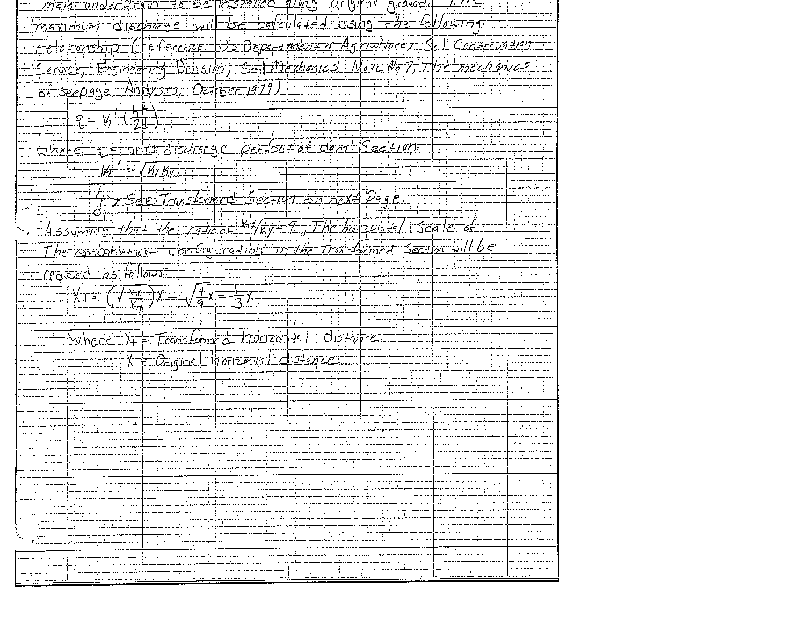 underdrain to be installed along original ground. The
maximum discharge will be calculated using the following
relationship (reference US Department of Agriculture, Soil Conservation
Service, Engineering Division, Soil Mechanics Note No 7, The mechanics
of Seepage Analysis, October 1979)
q = k'
where q = unit discharge per foot of dam Section
k' = √
See Transformed Section on next Page
Assuming that the ratio of = 9, The horizontal Scale of
The in the Transformed Section will be
as follows
XT = (√ )X = √1/9 X = 1/3 X
where XT = Transformed horizontal distance
X = Original horizontal distance